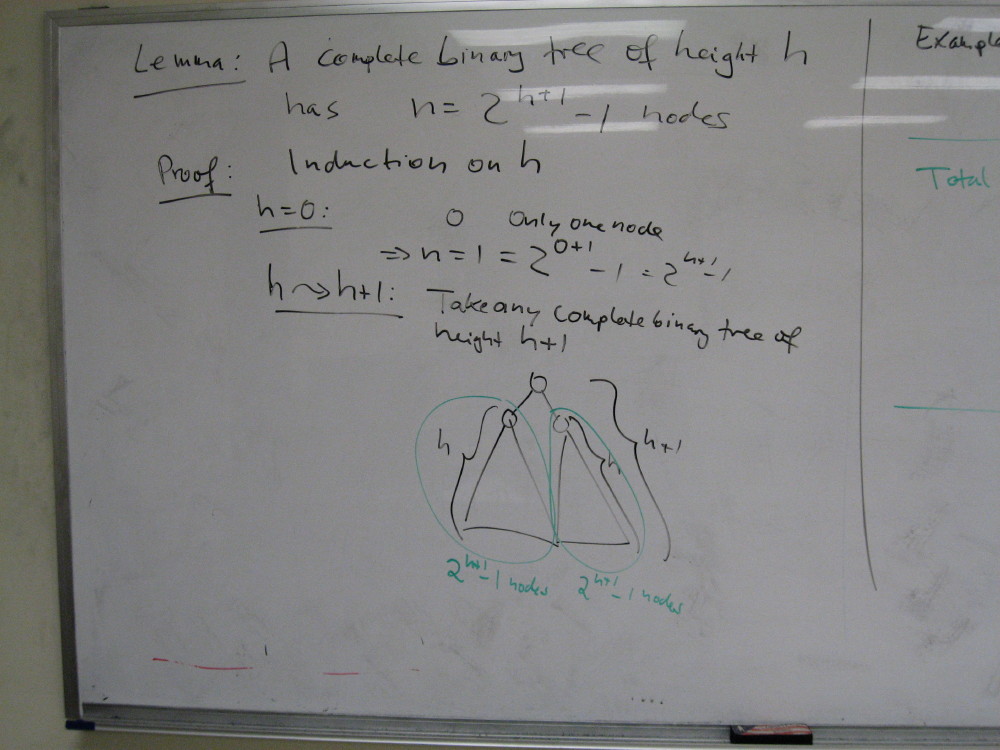 Lemma: A complete binary tree of height h
has n = 2^{h+1} - 1 nodes
Proof: Induction on h
h=0: O Only one node
⇒ n = 1 = 2^{0+1} - 1 = 2^{h+1} - 1
h ⇝ h+1: Take any complete binary tree of
height h+1
h
h
h+1
2^{h+1} - 1 nodes
2^{h+1} - 1 nodes
Total